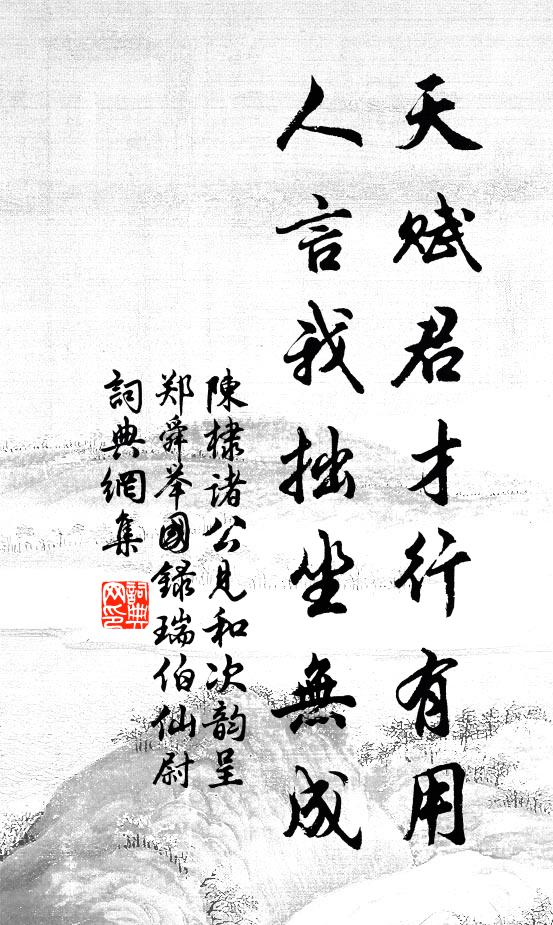 天赋君才行有用
人言我拙坐無成
陳棣诸公見和次韵呈
郑舜举國録瑞伯仙尉
詞典網集
詞典
网印